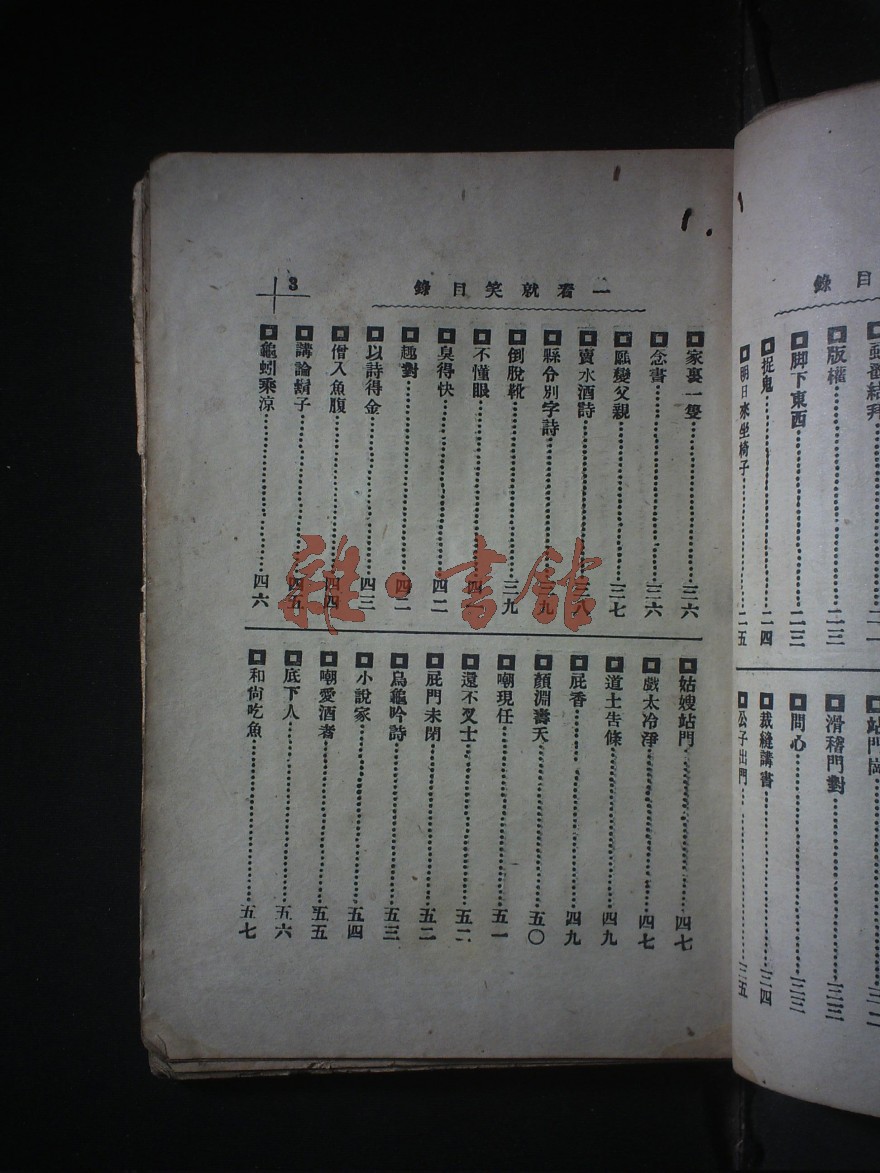 目錄
結拜……二一
版權……二三
脚下東西……二三
捉鬼……二四
明日來坐椅子……二五
站門崗……三二
滑稽門對……三三
問心……三三
裁縫講書……三四
公子出門……三五
一看就笑目錄
3
家裏一隻……三六
念書……三六
願變父親……三七
賣水酒詩……三八
縣令別字詩……三九
倒脫靴……三九
不懂眼……四一
臭得快……四二
趣對……四二
以詩得金……四三
僧入魚腹……四四
講論鬍子……四五
龜蚓乘涼……四六
姑嫂站門……四七
戲太冷淨……四七
道士告條……四九
屁香……四九
顏淵壽天……五〇
嘲現任……五一
還不叉士……五二
屁門未閉……五二
烏龜吟詩……五三
小說家……五四
嘲愛酒者……五五
底下人……五六
和尙吃魚……五七
雜·書館